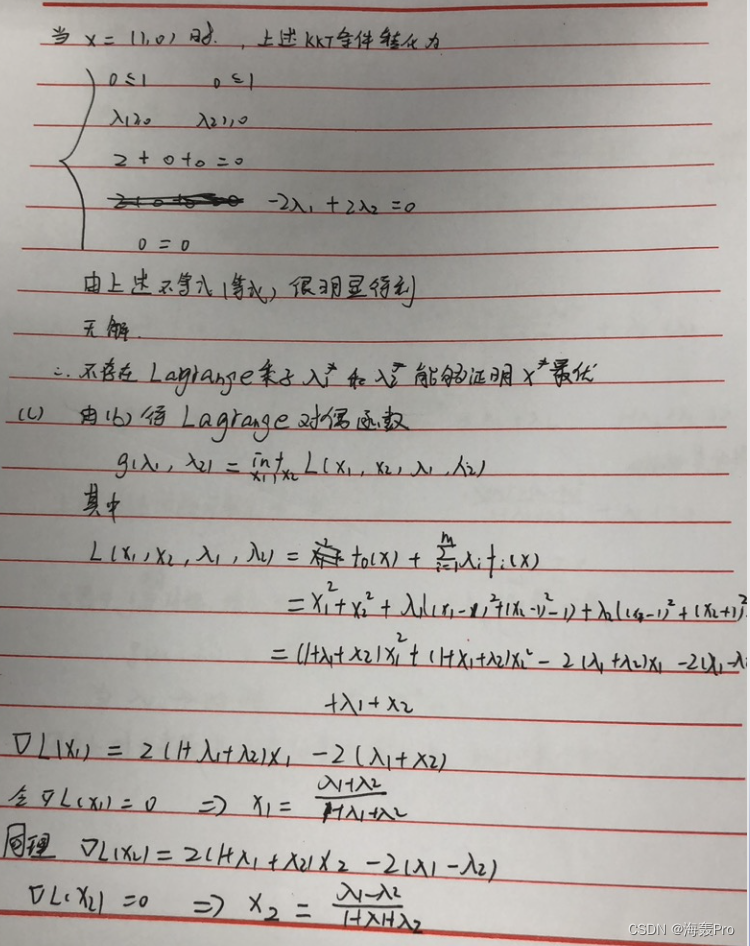 当 x = (1,0) 时, 上述KKT条件转化为
0≤1 0≤1
λ1≥0 λ2≥0
2 + 0 + 0 = 0
-2λ1 + 2λ2 = 0
0 = 0
由上述不等式(等式) 很明显得到
无解.
∴ 不存在 Lagrange乘子 λ1* 和 λ2* 能够证明 x* 最优
(c) 由(b)得 Lagrange 对偶函数
g(λ1, λ2) = inf x1,x2 L(x1, x2, λ1, λ2)
其中
L(x1, x2, λ1, λ2) = f0(x) + Σ i=1 m λi fi(x)
= x1² + x2² + λ1((x1-1)²+(x2-1)²-1) + λ2((x1-1)²+(x2+1)²
= (1+λ1+λ2)x1² + (1+λ1+λ2)x2² - 2(λ1+λ2)x1 - 2(λ1-λ
+λ1+λ2
∇L(x1) = 2(1+λ1+λ2)x1 - 2(λ1+λ2)
令∇L(x1) = 0 => x1 = (λ1+λ2)/(1+λ1+λ2)
同理 ∇L(x2) = 2(1+λ1+λ2)x2 - 2(λ1-λ2)
∇L(x2) = 0 => x2 = (λ1-λ2)/(1+λ1+λ2)
CSDN @海轰Pro